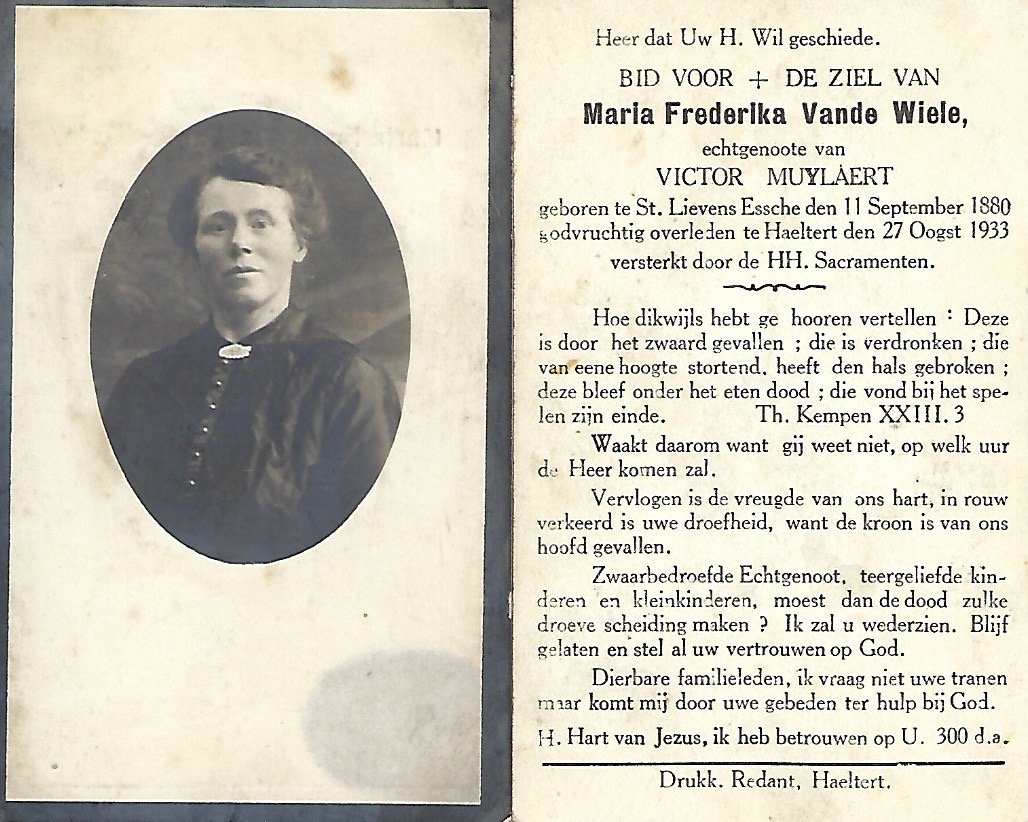 Heer dat Uw H. Wil geschiede.
BID VOOR + DE ZIEL VAN
Maria Frederika Vande Wiele,
echtgenoote van
VICTOR MUYLAERT
geboren te St. Lievens Essche den 11 September 1880
godvruchtig overleden te Haeltert den 27 Oogst 1933
versterkt door de HH. Sacramenten.
Hoe dikwijls hebt ge hooren vertellen : Deze
is door het zwaard gevallen ; die is verdronken ; die
van eene hoogte stortend, heeft den hals gebroken ;
deze bleef onder het eten dood ; die vond bij het spe-
len zijn einde. Th. Kempen XXIII. 3
Waakt daarom want gij weet niet, op welk uur
de Heer komen zal.
Vervlogen is de vreugde van ons hart, in rouw
verkeerd is uwe droefheid, want de kroon is van ons
hoofd gevallen.
Zwaarbedroefde Echtgenoot, teergeliefde kin-
deren en kleinkinderen, moest dan de dood zulke
droeve scheiding maken ? Ik zal u wederzien. Blijf
gelaten en stel al uw vertrouwen op God.
Dierbare familieleden, ik vraag niet uwe tranen
maar komt mij door uwe gebeden ter hulp bij God.
H. Hart van Jezus, ik heb betrouwen op U. 300 d.a.
Drukk. Redant, Haeltert.